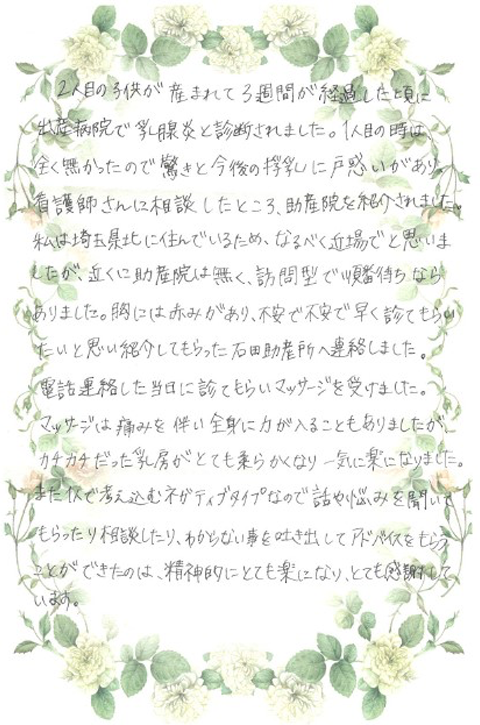 2人目の子供が産まれて3週間が経過した頃に
出産病院で乳腺炎と診断されました。1人目の時は、
全く無かったので驚きと今後の授乳に戸惑いがあり
看護師さんに相談したところ、助産院を紹介されました。
私は埼玉県北に住んでいるため、なるべく近場でと思いま
したが、近くに助産院は無く、訪問型で順番待ちなら
ありました。胸には赤みがあり、不安で不安で早く診てもらい
たいと思い紹介してもらった石田助産所へ連絡しました。
電話連絡した当日に診てもらいマッサージを受けました。
マッサージは痛みを伴い全身に力が入ることもありましたが、
カチカチだった乳房がとても柔らかくなり一気に楽になりました。
また1人で考え込むネガティブタイプなので話や悩みを聞いて
もらったり相談したり、わからない事を吐き出してアドバイスをもらう
ことができたのは、精神的にとても楽になり、とても感謝して
います。